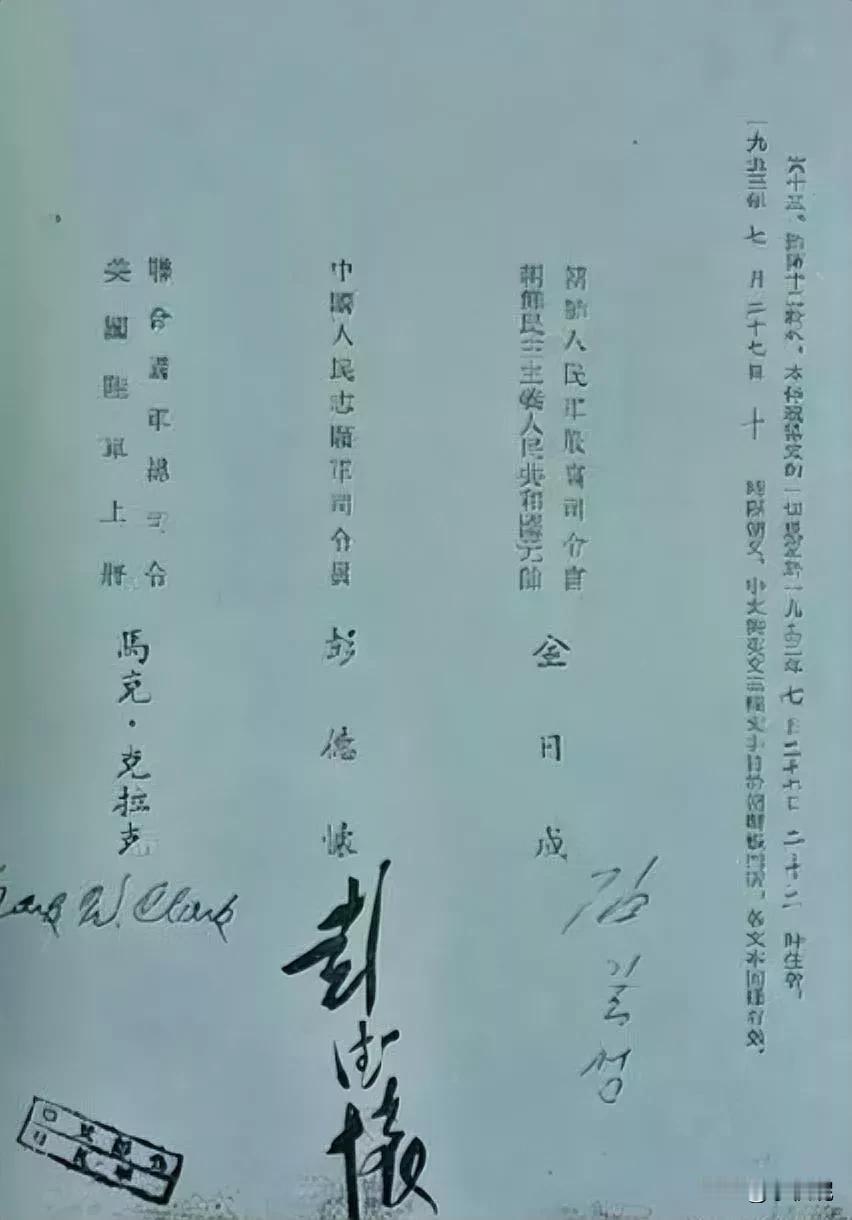 六十三、除第十二款外，本停戰協定的一切規定於一九五三年七月二十七日二十二時生效。
一九五三年七月二十七日十時以朝文、中文與英文三種文字訂於朝鮮板門店，各文本同樣有效。
朝鮮人民軍最高司令官
朝鮮民主主義人民共和國元帥
金日成
김일성
中國人民志願軍司令員
彭德懷
彭德懷
聯合國軍總司令
美國陸軍上將
馬克·克拉克
Mark W. Clark